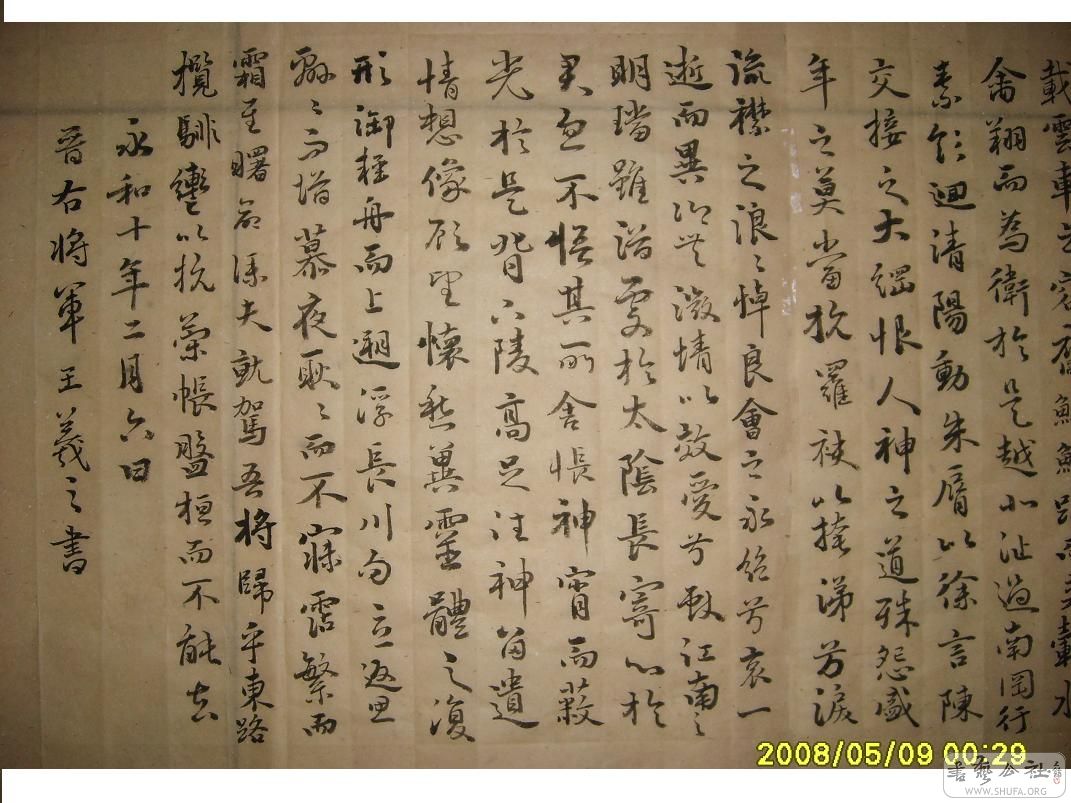 載雲車之容裔鯨鯢踊而夾轂水
禽翔而為衛於是越北沚過南岡行
素領迴清陽動朱脣以徐言陳
交接之大綱恨人神之道殊怨盛
年之莫當抗羅袂以掩涕兮淚
流襟之浪〻悼良會之永絕兮哀一
逝而異鄉無微情以效愛兮獻江南之
明璫雖潛處於太陰長寄心於
君忽不悟其所舍悵神宵而蔽
光於是背下陵高足往神留遺
情想像顧望懷愁冀靈體之復
形御輕舟而上遡浮長川而忘返思
緜〻而增慕夜耿〻而不寐霑繁而
霜至曙命僕夫就駕吾將歸乎東路
攬騑轡以抗策悵盤桓而不能去
永和十年二月六日
晉右將軍王羲之書
2008/05/09 00:29
書藝公社
WWW.SHUFA.ORG